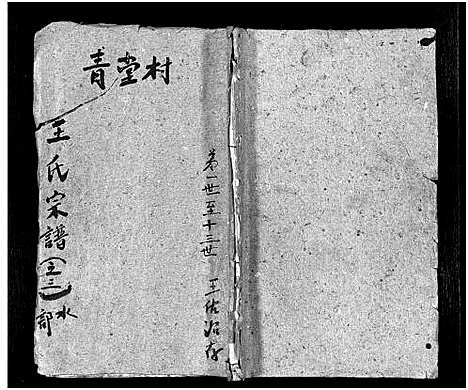 青堂村
王氏宗譜(之三)水部
第一世至十三世 王佐治存